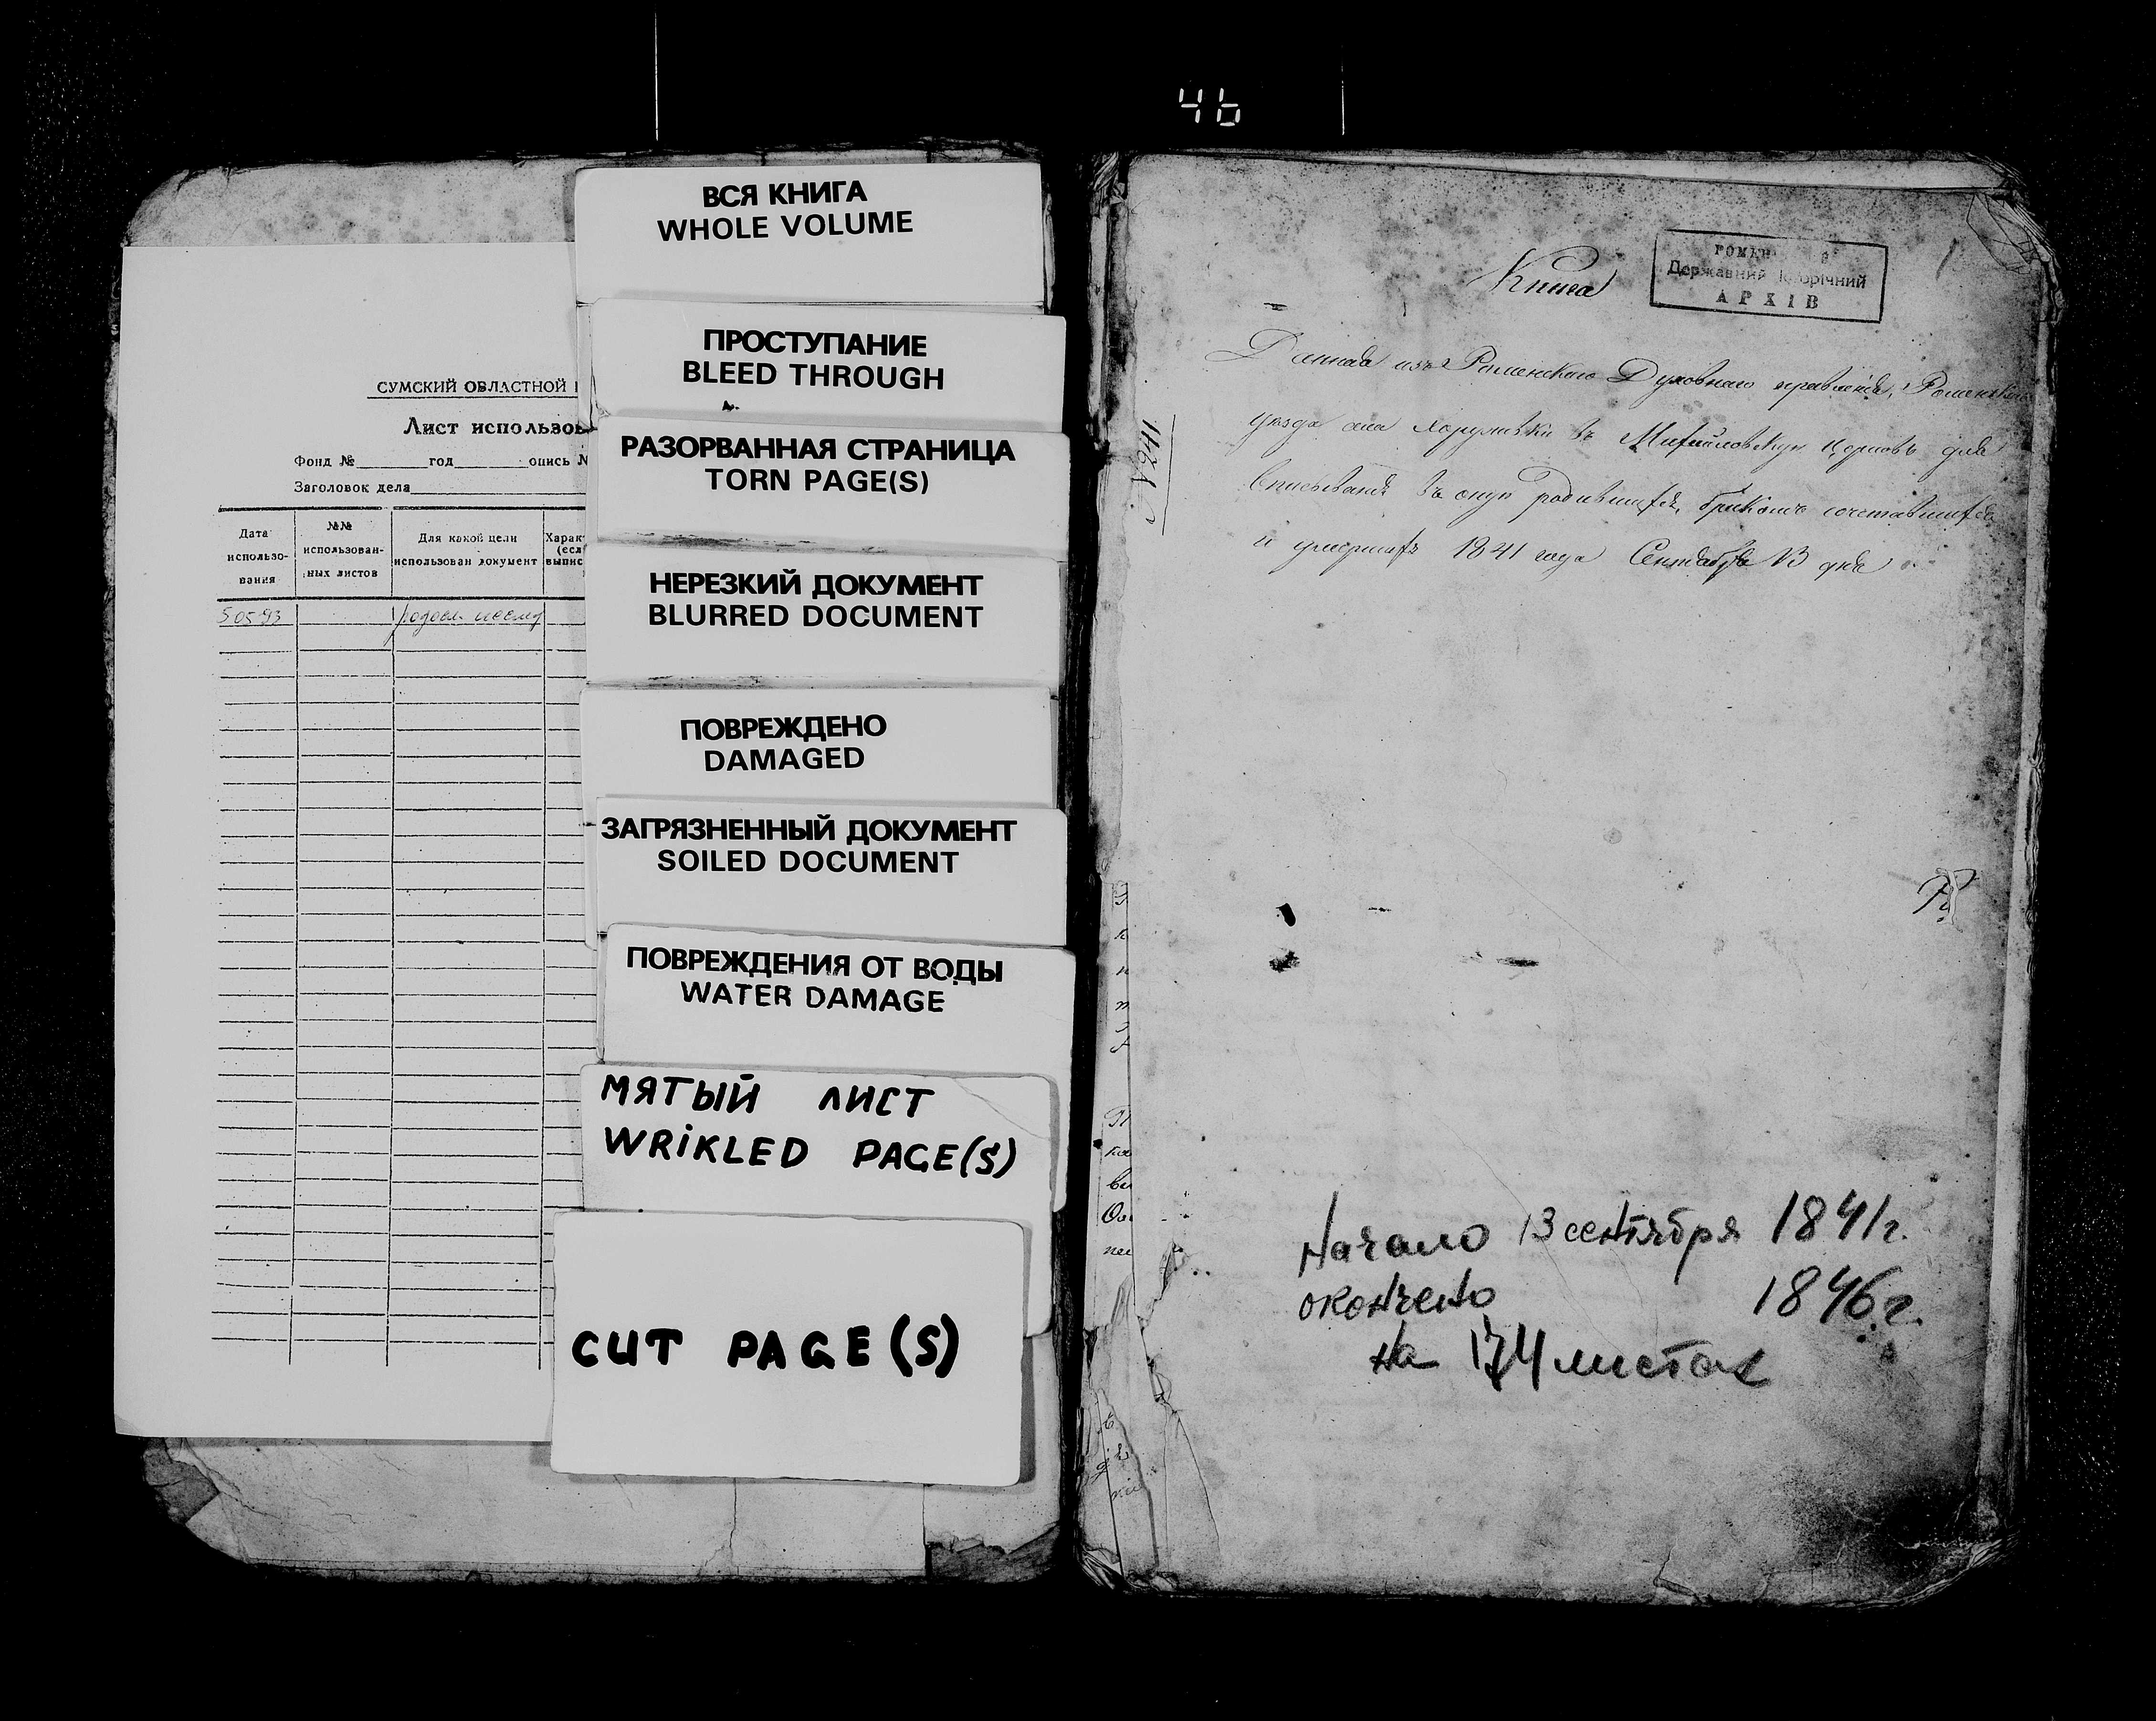 4b
СУМСКИЙ ОБЛАСТНОЙ
Лист использов
Фонд № год опись №
Заголовок дела
Дата использо-вания
№№ использован-ных листов
Для какой цели использован документ
Харак (есл выпис
5 05 93
ВСЯ КНИГА
WHOLE VOLUME
ПРОСТУПАНИЕ
BLEED THROUGH
РАЗОРВАННАЯ СТРАНИЦА
TORN PAGE(S)
НЕРЕЗКИЙ ДОКУМЕНТ
BLURRED DOCUMENT
ПОВРЕЖДЕНО
DAMAGED
ЗАГРЯЗНЕННЫЙ ДОКУМЕНТ
SOILED DOCUMENT
ПОВРЕЖДЕНИЯ ОТ ВОДЫ
WATER DAMAGE
МЯТЫЙ ЛИСТ
WRIKLED PAGE(S)
CUT PAGE(S)
Книга
Державний Історічний
АРХІВ
1
Данная изъ Роменскаго Духовнаго правленія, Роменскаго
уѣзда села Хоружевки въ Михайловскую церковь для
вписыванія въ оную родившихся, бракомъ сочетавшихся
и умершихъ 1841 года Сентября 13 дня
Начало 13 сентября 1841 г.
окончено 1846 г.
на 174 листах